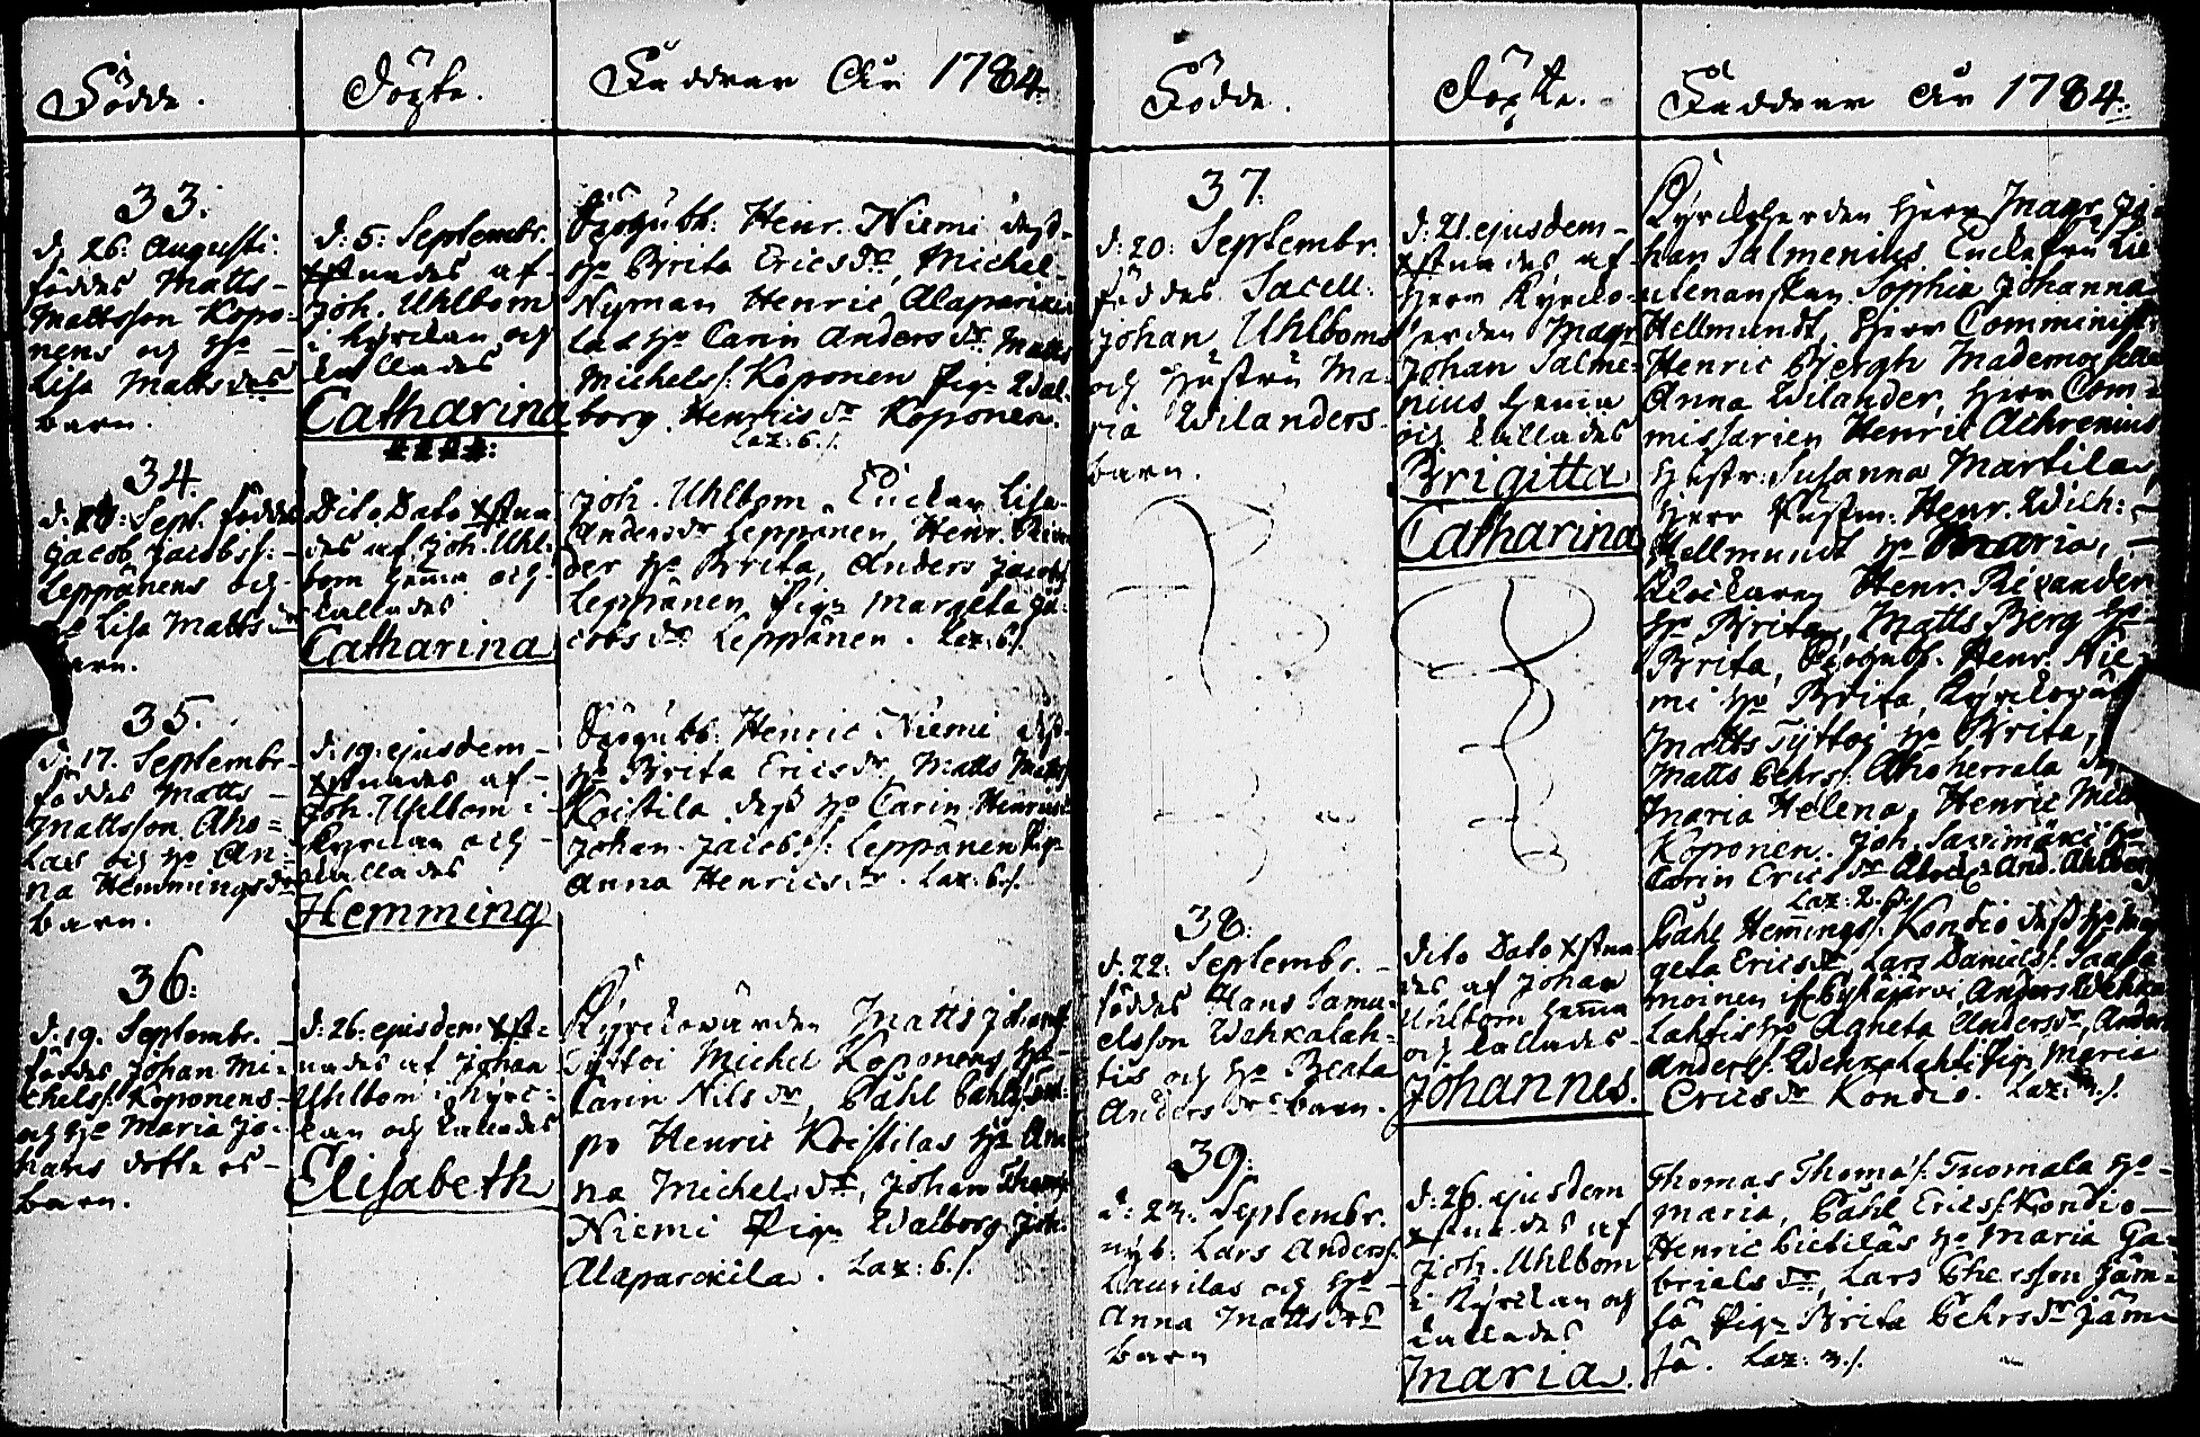 Födde.
Döpte.
Faddrar År 1784.
33.
d. 26. Augusti
föddes Matts
Mattsson Kopo=
nens och Ho
Lisa Mattsdrs
barn.
d: 5: Septembr.
Xstnades af
Joh. Uhlbom
i Kyrckan och
kallades
Catharina
Henr. Niemi dess
Ho Brita Ericsdr, Michel
Nyman Henric Alaparickila
Ho Carin Andersdr Matts
Michelss: Koponen Pig. Wal=
borg Henricsdr Koponen.
Lax: 6. /.
34.
Sept. föddes
Jacob Jacobss:
Leppänens och
Ho Lisa Mattsdr
barn.
Dito Dato Xstna
des af Joh. Uhl=
bom hema och
kallades
Catharina
Joh. Uhlbom, Enckan Lisa
Andersdr Leppänen, Henr.
Ho Brita, Anders Jacobss
Leppänen Pig. Margeta Ja=
cobsdr Leppänen. Lax: 6/.
35.
d: 17. Septembr
föddes Matts
Mattsson Aho=
las och Ho An=
na Hemmingsdrs
barn.
d: 19. ejusdem
Xstnades af
Joh. Uhlbom i
Kyrckan och
kallades
Hemming
Henric Niemi dess
Ho Brita Ericsdr, Matts Mattss
Koistila dess Ho Carin Henricsd
Johan Jacobss: Leppänen Pig.
Anna Henricsdr. Lax: 6 /.
36.
d: 19. Septembr.
föddes Johan Mi=
chelss: Koponens
och Ho Maria Jo=
hans dotters
barn.
d: 26. ejusdem Xst=
nades af Johan
Uhlbom i Kyrc=
kan och kallades
Elisabeth
Kyrckowärden Matts Johanss
Tyttoi Michel Koponens Ho
Carin Nilsdr, Påhl Påhlss:
po Henric Koistilas Ho An
na Michelsdr, Johan Thomss
Niemi Pig. Walborg Joh.
Alaparckila. Lax: 6. /.
Födde.
Döpte.
Faddrar År 1784.
37.
d: 20: Septembr.
föddes Sacell.
Johan Uhlboms
och Hustru Ma=
ria Wilanders
barn.
d: 21. ejusdem
Xstnades af
Herr Kyrcko=
herden Magr
Johan Salme=
nius hema
och kallades
Brigitta
Catharina
Kyrckoherden Herr Magr Jo=
han Salmenius Enckefru Lie
utenanskan Sophia Johanna
Hellmundt, Herr Comminist:
Henric Bjergh Mademoiselle
Anna Wilander, Herr Com=
missarien Henric Achrenius
Hustr: Susanna Martila,
Herr Henr. Wilh:
Hellmundt Ho Maria,
Klockaren Henr. Rixander
Ho Brita, Matts Berg Ho
Brita, Henr. Nie=
mi Ho Brita, Kyrckowär
Matts Tyttoi Ho Brita,
Matts Pehrs: Ahoherrala
Maria Helena, Henric
Koponen. Joh. Savimäki Ho
Carin Ericsdr And. Ahlberg
38.
d. 22: Septembr.
föddes Hans Samu=
elsson Wehkalah=
tis och Ho Beata
Andersdrs barn.
Dito Dato Xstna
des af Johan
Uhlbom hema
och kallades
Johannes.
Påhl Hemings: Kondio dess Ho Mar
geta Ericsdr Lars Daniels: Saasta
moinen if Pyhäjärvi, Anders Wehka
lahtis Ho Agneta Andersdr, Anders
Anderss. Wehkalahti Pig. Maria
Ericsdr Kondio.
39.
d: 23. Septembr.
nyb: Lars Anderss.
Laurilas och Ho
Anna Mattsdrs
barn
d: 26. ejusdem
Xstnades af
Joh. Uhlbom
i Kyrckan och
kallades
Maria.
Thomas Thomas: Tuomala Ho
Maria, Påhl Erics: Kondio
Henric Pietiläs Ho Maria Ga=
brielsdr, Lars Pherson Jäm=
sä Pig. Brita Pehrsdr Jäm=
sä. Lax: 3. /.